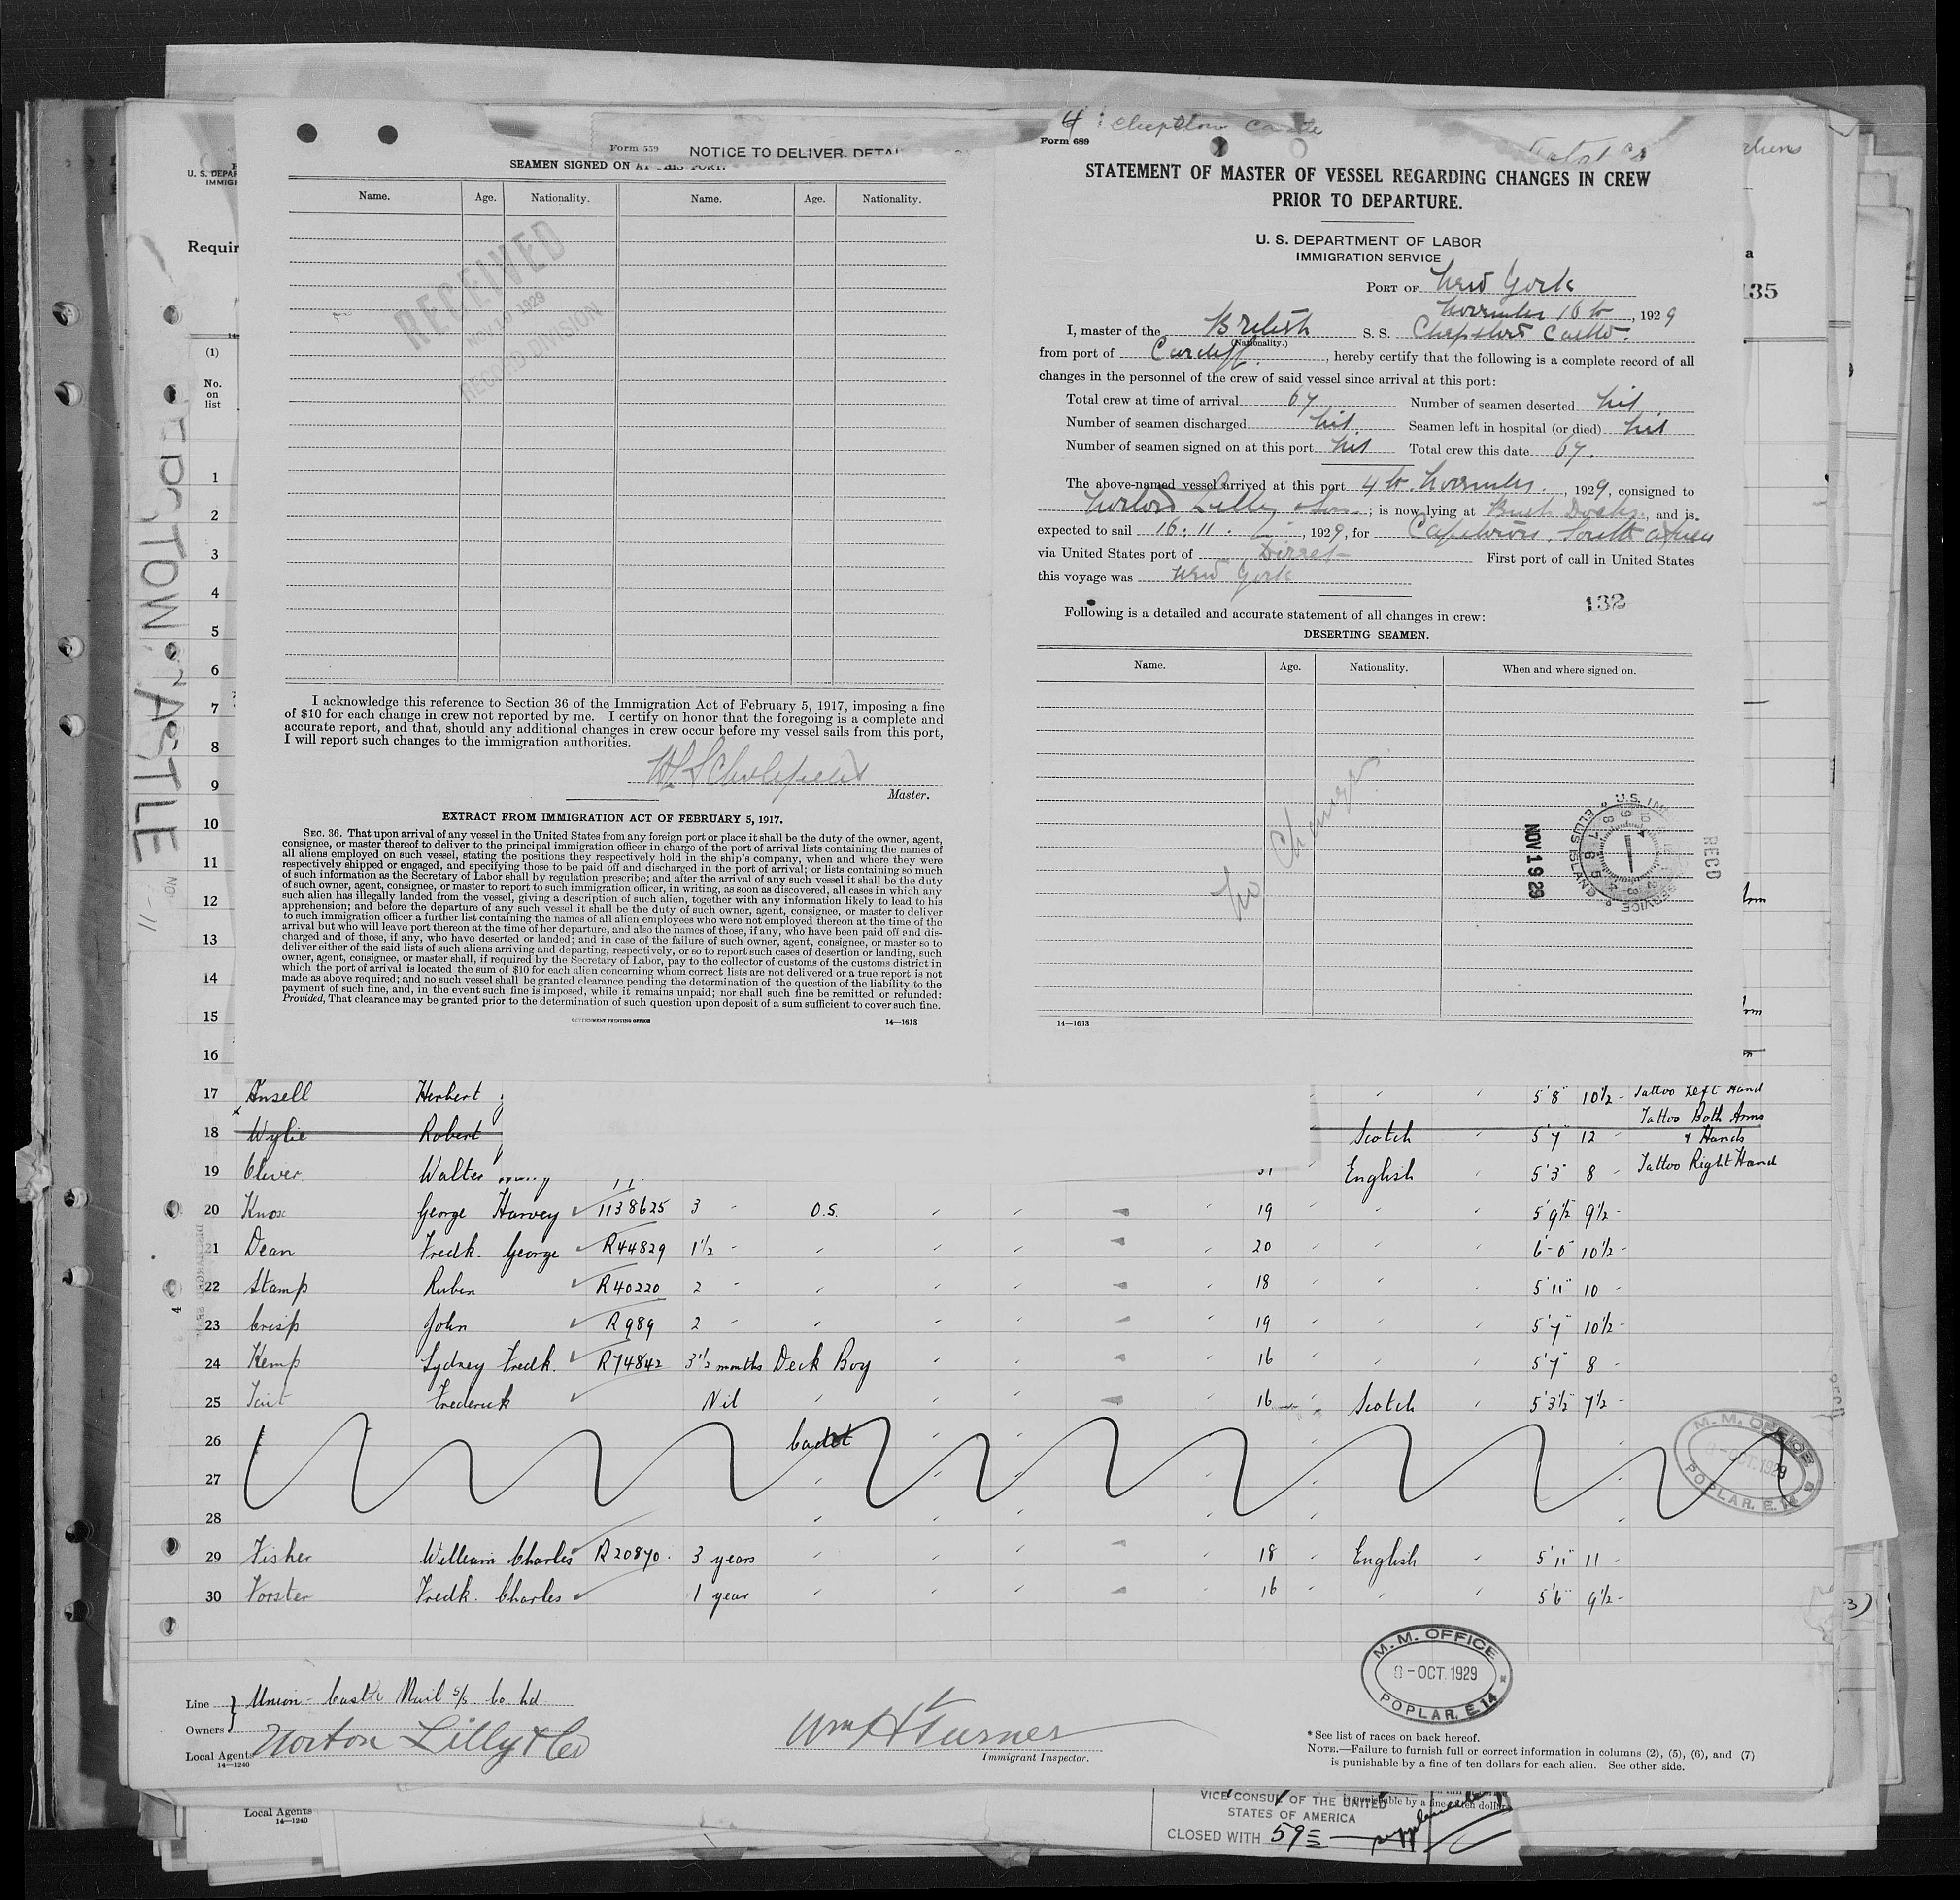 Form 559 NOTICE TO DELIVER, DETAI
SEAMEN SIGNED ON AT THIS PORT.
Name. Age. Nationality. Name. Age. Nationality.
RECEIVED
NOV 19 1929
RECORD DIVISION
I acknowledge this reference to Section 36 of the Immigration Act of February 5, 1917, imposing a fine
of $10 for each change in crew not reported by me. I certify on honor that the foregoing is a complete and
accurate report, and that, should any additional changes in crew occur before my vessel sails from this port,
I will report such changes to the immigration authorities.
Master.
EXTRACT FROM IMMIGRATION ACT OF FEBRUARY 5, 1917.
SEC. 36. That upon arrival of any vessel in the United States from any foreign port or place it shall be the duty of the owner, agent,
consignee, or master thereof to deliver to the principal immigration officer in charge of the port of arrival lists containing the names of
all aliens employed on such vessel, stating the positions they respectively hold in the ship's company, when and where they were
respectively shipped or engaged, and specifying those to be paid off and discharged in the port of arrival; or lists containing so much
of such information as the Secretary of Labor shall by regulation prescribe; and after the arrival of any such vessel it shall be the duty
of such owner, agent, consignee, or master to report to such immigration officer, in writing, as soon as discovered, all cases in which any
such alien has illegally landed from the vessel, giving a description of such alien, together with any information likely to lead to his
apprehension; and before the departure of any such vessel it shall be the duty of such owner, agent, consignee, or master to deliver
to such immigration officer a further list containing the names of all alien employees who were not employed thereon at the time of the
arrival but who will leave port thereon at the time of her departure, and also the names of those, if any, who have been paid off and dis-
charged and of those, if any, who have deserted or landed; and in case of the failure of such owner, agent, consignee, or master so to
deliver either of the said lists of such aliens arriving and departing, respectively, or so to report such cases of desertion or landing, such
owner, agent, consignee, or master shall, if required by the Secretary of Labor, pay to the collector of customs of the customs district in
which the port of arrival is located the sum of $10 for each alien concerning whom correct lists are not delivered or a true report is not
made as above required; and no such vessel shall be granted clearance pending the determination of the question of the liability to the
payment of such fine, and, in the event such fine is imposed, while it remains unpaid; nor shall such fine be remitted or refunded:
Provided, That clearance may be granted prior to the determination of such question upon deposit of a sum sufficient to cover such fine.
GOVERNMENT PRINTING OFFICE 14—1613
Form 689
STATEMENT OF MASTER OF VESSEL REGARDING CHANGES IN CREW
PRIOR TO DEPARTURE.
U. S. DEPARTMENT OF LABOR
IMMIGRATION SERVICE
PORT OF New York
November 16th, 1929
I, master of the British S. S. Chepstow Castle.
(Nationality.)
from port of Cardiff, hereby certify that the following is a complete record of all
changes in the personnel of the crew of said vessel since arrival at this port:
Total crew at time of arrival 67 Number of seamen deserted nil
Number of seamen discharged nil Seamen left in hospital (or died) nil
Number of seamen signed on at this port nil Total crew this date 67.
The above-named vessel arrived at this port 4th November, 1929, consigned to
Norton Lilly & Son; is now lying at Bush Docks, and is
expected to sail 16.11., 1929, for Capetown, South Africa
via United States port of Direct First port of call in United States
this voyage was New York
132
Following is a detailed and accurate statement of all changes in crew:
DESERTING SEAMEN.
Name. Age. Nationality. When and where signed on.
No Change
NOV 19 29
U.S. IMMIGRATION SERVICE ELLIS ISLAND
RECD
14—1613
U. S. DEPAR
IMMIGR
Requir
135
(1)
No.
on
list
1
2
3
4
5
6
7
8
9
10
11
12
13
14
15
16
17 Ansell Herbert 5'8" 10½ Tattoo Left Hand
18 Wylie Robert Scotch 5'7" 12 Tattoo Both Arms & Hands
19 Oliver Walter 31 English 5'3" 8 Tattoo Right Hand
20 Knox George Harvey 1138625 3 O.S. 19 5'9½ 9½
21 Dean Fredk. George R44829 1½ 20 6-0" 10½
22 Stamp Ruben R40220 2 18 5'11" 10
23 Crisp John R989 2 19 5'7" 10½
24 Kemp Sydney Fredk. R74842 3½ months Deck Boy 16 5'7" 8
25 Tait Frederick Nil 16 Scotch 5'3½" 7½
26 Cadet
27
28
29 Fisher William Charles R20870. 3 years 18 English 5'11" 11
30 Forster Fredk. Charles 1 year 16 5'6" 9½
M. M. OFFICE
8-OCT.1929
POPLAR. E.14
M. M. OFFICE
8-OCT.1929
POPLAR. E.14
Line Union-Castle Mail S/S Co Ld
Owners
Local Agents Norton Lilly & Co
14—1240
Wm H Turner
Immigrant Inspector.
* See list of races on back hereof.
NOTE.—Failure to furnish full or correct information in columns (2), (5), (6), and (7)
is punishable by a fine of ten dollars for each alien. See other side.
Local Agents
14—1240
VICE CONSUL OF THE UNITED
STATES OF AMERICA
CLOSED WITH 59